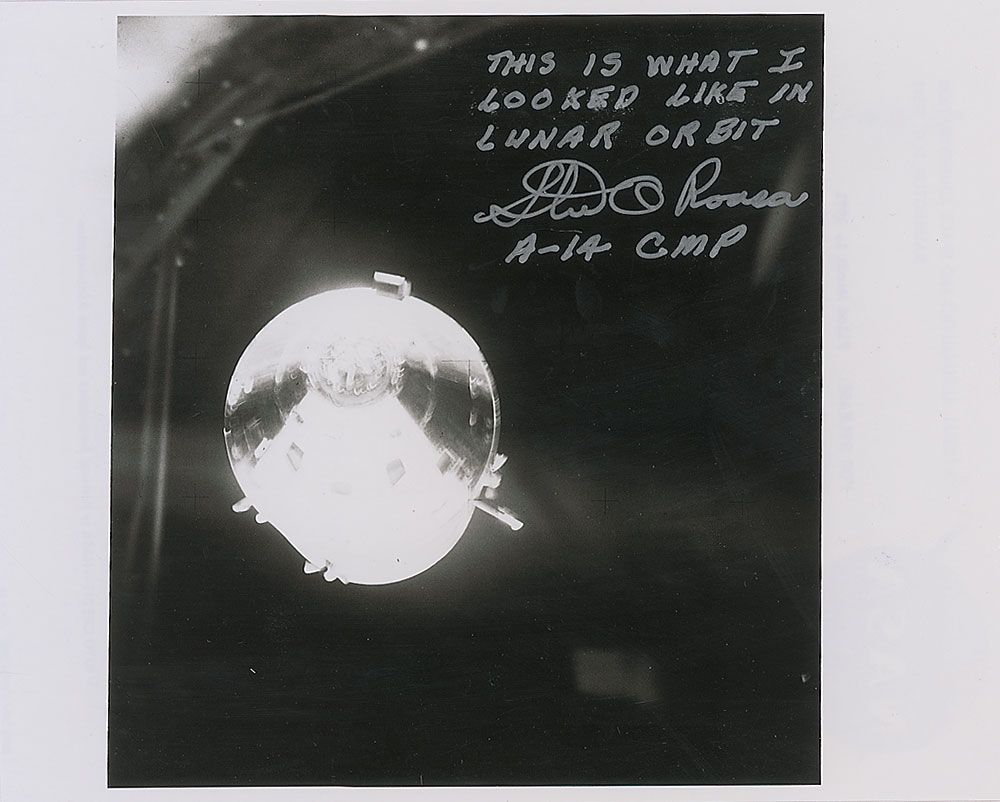 THIS IS WHAT I
LOOKED LIKE IN
LUNAR ORBIT
Stu Roosa
A-14 CMP